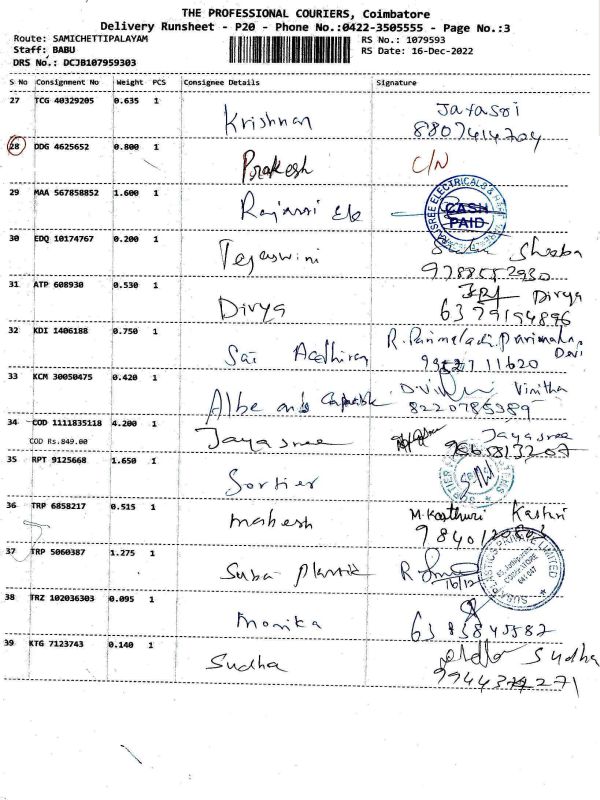 THE PROFESSIONAL COURIERS, Coimbatore
Delivery Runsheet - P20 - Phone No.:0422-3505555 - Page No.:3
Route: SAMICHETTIPALAYAM
Staff: BABU
DRS No.: DCJB107959303
RS No.: 1079593
RS Date: 16-Dec-2022
S No Consignment No Weight PCS Consignee Details Signature
27 TCG 40329205 0.635 1 Krishnan Jayasri
8807414704
28 DDG 4625652 0.800 1 Prakesh C/N
29 MAA 567858852 1.600 1 Rajasri Ele
RAJASREE ELECTRICALS &
CASH
PAID
30 EDQ 10174767 0.200 1 Tejaswini Sheeba
9788552930
31 ATP 608930 0.530 1 Divya Divya
6379194896
32 KDI 1406188 0.750 1 Sai Aadhiran R. Parimaladevi Parimala
Devi
33 KCM 30050475 0.420 1 Albe and D.Vi Vinitha
8220785389
34 COD 1111835118 4.200 1 Jayasree Jayasree
COD Rs.849.00
35 RPT 9125668 1.650 1 Sortier
36 TRP 6858217 0.515 1 mahesh M.Kasthuri Kasturi
37 TRP 5060387 1.275 1 Suba Plastic
16/12
SUBA PLASTICS PRIVATE LIMITED
COIMBATORE
641 047
38 TRZ 102036303 0.095 1 Monika 6383845582
39 KTG 7123743 0.140 1 Sudha Sudha